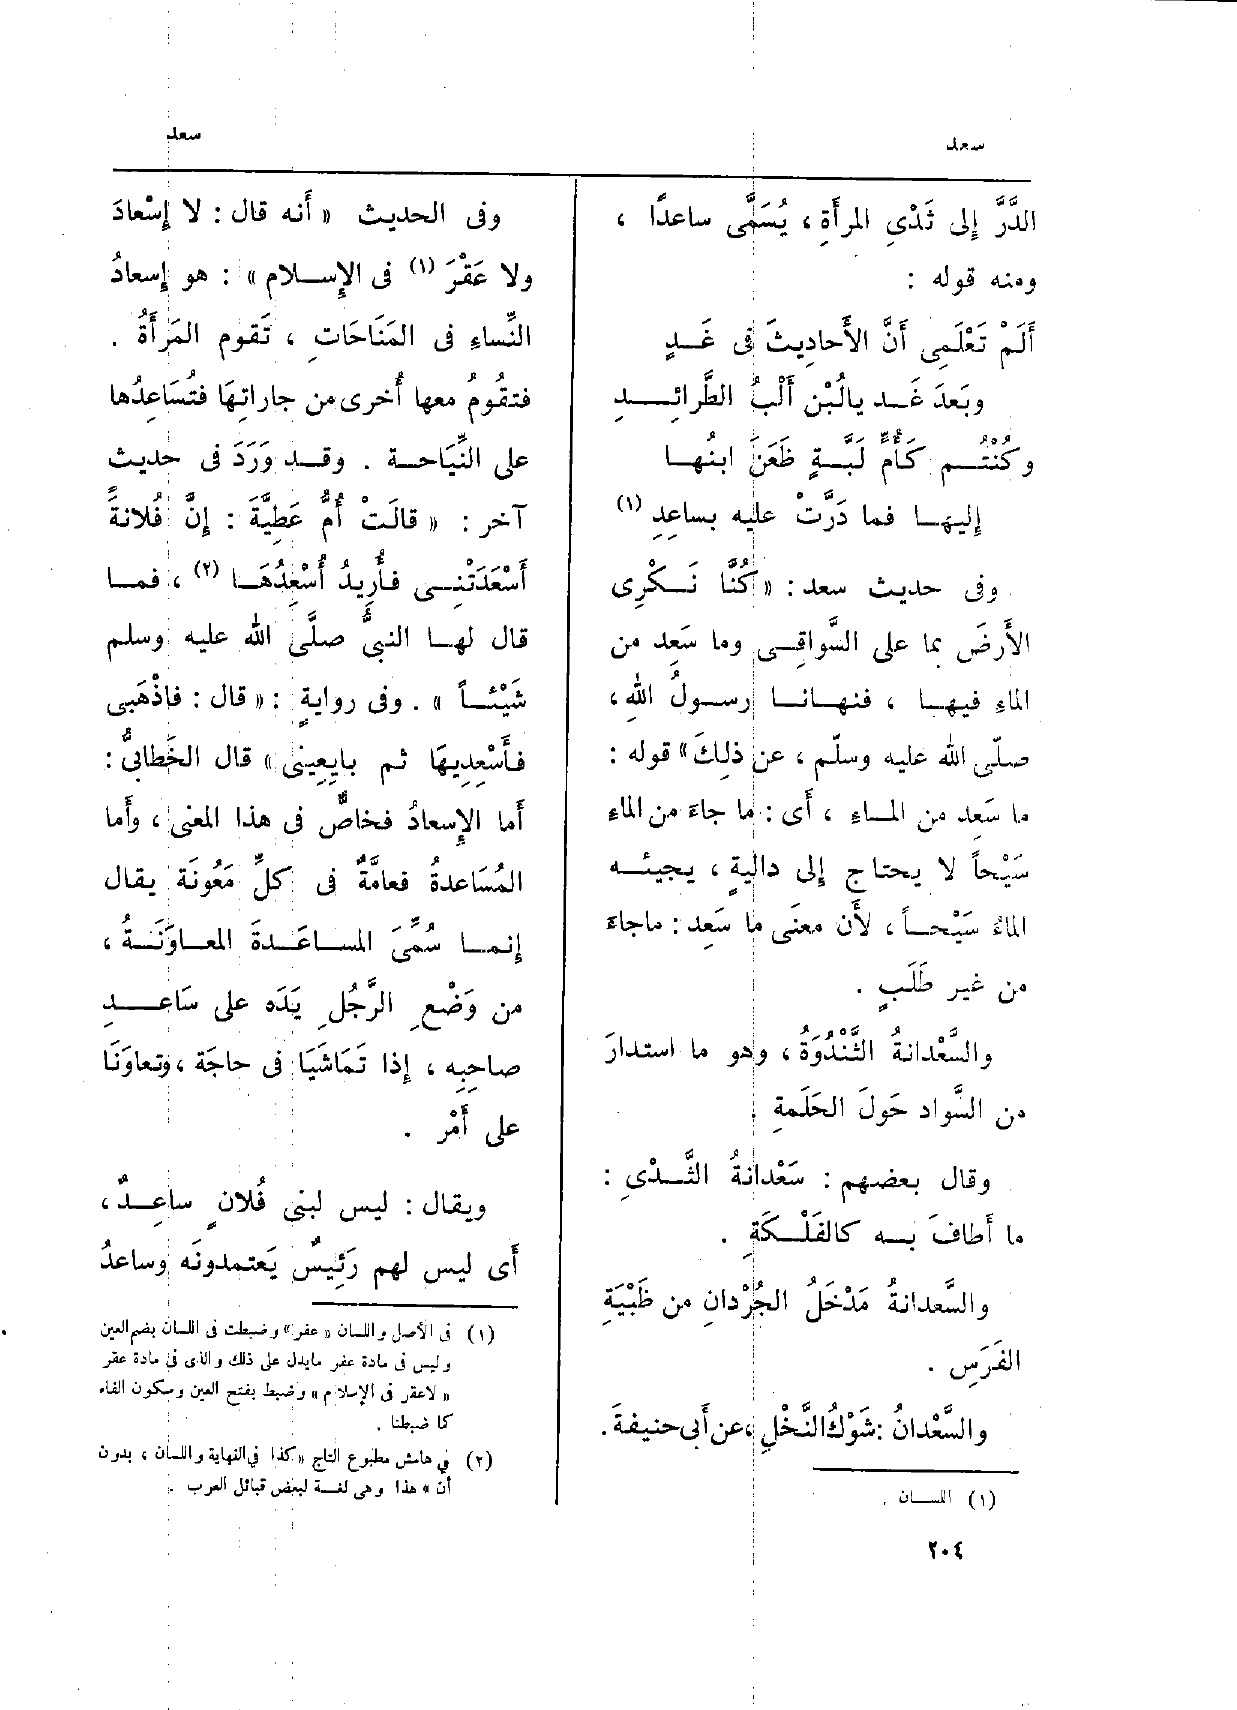 سعد
سعد
الدَّرَّ إلى ثَدْىِ المرأَةِ ، يُسَمَّى ساعدًا ،
ومنه قوله :
أَلَمْ تَعْلَمِى أَنَّ الأَحاديثَ فى غَــدٍ
وبَعدَ غَــد يالُبْن أَلْبُ الطَّرائِــــد
وكُنْتُــم كَأُمٍّ لَبَّةٍ ظَعَنَ ابنُهــا
إليهــا فما دَرَّتْ عليه بساعِدِ (١)
وفى حديث سعد : « كُنَّا نَــكْرِى
الأَرضَ بما على السَّواقِــى وما سَعِد من
الماءِ فيهــا ، فنهــانــا رســولُ اللهِ ،
صلّى الله عليه وسلّم ، عن ذلِكَ » قوله :
ما سَعِد من المــاءِ ، أَى : ما جاءَ من الماءِ
سَيْحاً لا يحتاج إلى داليةٍ ، يجيئــه
الماءُ سَيْحــاً ، لأَن معنَى ما سَعِد : ماجاءَ
من غير طَلَبٍ .
والسَّعْدانةُ الثُّنْدُوَةُ ، وهو ما استدارَ
من السَّواد حَولَ الحَلَمةِ .
وقال بعضهم : سَعْدانةُ الثَّــدْىِ :
ما أَطافَ بــه كالفَلْــكَةِ .
والسَّعدانةُ مَدْخَلُ الجُرْدانِ من ظَبْيَةِ
الفَرَسِ .
والسَّعْدانُ : شَوْكُ النَّخْلِ ، عن أَبى حنيفةَ .
(١) اللســان .
وفى الحديث « أَنه قال : لا إسْعادَ
ولا عَقْرَ (١) فى الإِســلام » : هو إسعادُ
النِّساءِ فى المَنَاحَاتِ ، تَقوم المَرأَةُ .
فتقومُ معها أُخرى من جاراتِهَا فتُسَاعِدُها
على النِّيَاحــة . وقــد وَرَدَ فى حديث
آخر : « قالَتْ أُمُّ عَطِيَّةَ : إنَّ فُلانةً
أَسْعَدَتْنِــى فأُرِيدُ أُسْعِدُهَــا (٢) ، فمــا
قال لهــا النبىُّ صلَّى الله عليه وسلم
شَيْئــاً » . وفى روايةٍ : « قال : فاذْهَبِى
فأَسْعِدِيهَا ثم بايِعِينى » قال الخَطابىُّ :
أَما الإِسعادُ فخاصٌّ فى هذا المعنى ، وأَما
المُسَاعدةُ فعامَّةٌ فى كلِّ مَعُونَة يقال
إنمــا سُمِّىَ المســاعَــدةَ المعــاوَنَــةُ ،
من وَضْعِ الرَّجُلِ يَدَه على سَاعِــــدِ
صاحِبِه ، إذا تَمَاشَيَا فى حاجَة ، وتعاوَنَا
على أَمْر .
ويقال : ليس لبنى فُلانٍ ساعِــدٌ ،
أَى ليس لهم رَئِيسٌ يَعتمدونَه وساعدُ
(١) فى الأصل واللسان « عفر » وضبطت فى اللسان بضم العين
وليس فى مادة عفر مايدل على ذلك والذى فى مادة عقر
« لاعقر فى الإسلام » وضبط بفتح العين وسكون القاف
كما ضبطنا .
(٢) فى هامش مطبوع التاج « كذا فى النهاية واللسان ، بدون
أن » هذا وهى لغــة لبعض قبائل العرب .
٢٠٤